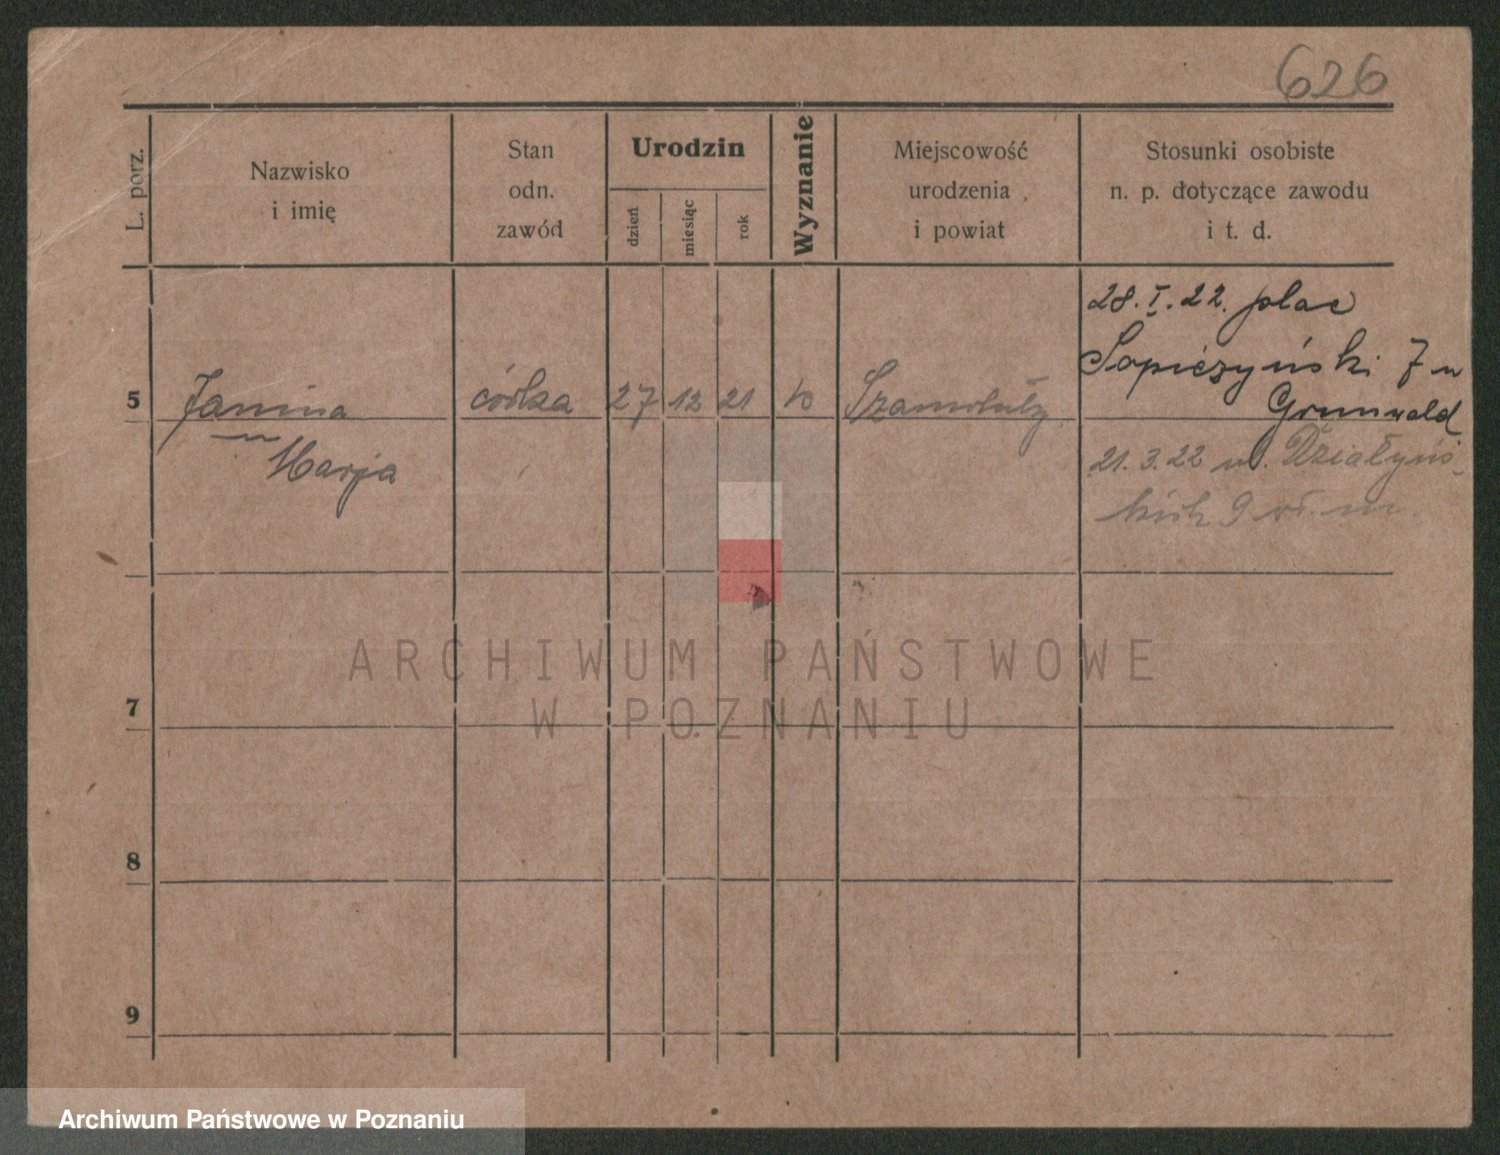 626
L. porz.
Nazwisko
i imię
Stan
odn.
zawód
Urodzin
dzień
miesiąc
rok
Wyznanie
Miejscowość
urodzenia
i powiat
Stosunki osobiste
n. p. dotyczące zawodu
i t. d.
28. I. 22. plac
Sapieżyński 7 u
Grunwald
5 Janina córka 27 12 21 Szamotuły
Marja
21. 3. 22 ul. Działyńs-
kich 9
7
8
9
ARCHIWUM PAŃSTWOWE
W POZNANIU
Archiwum Państwowe w Poznaniu